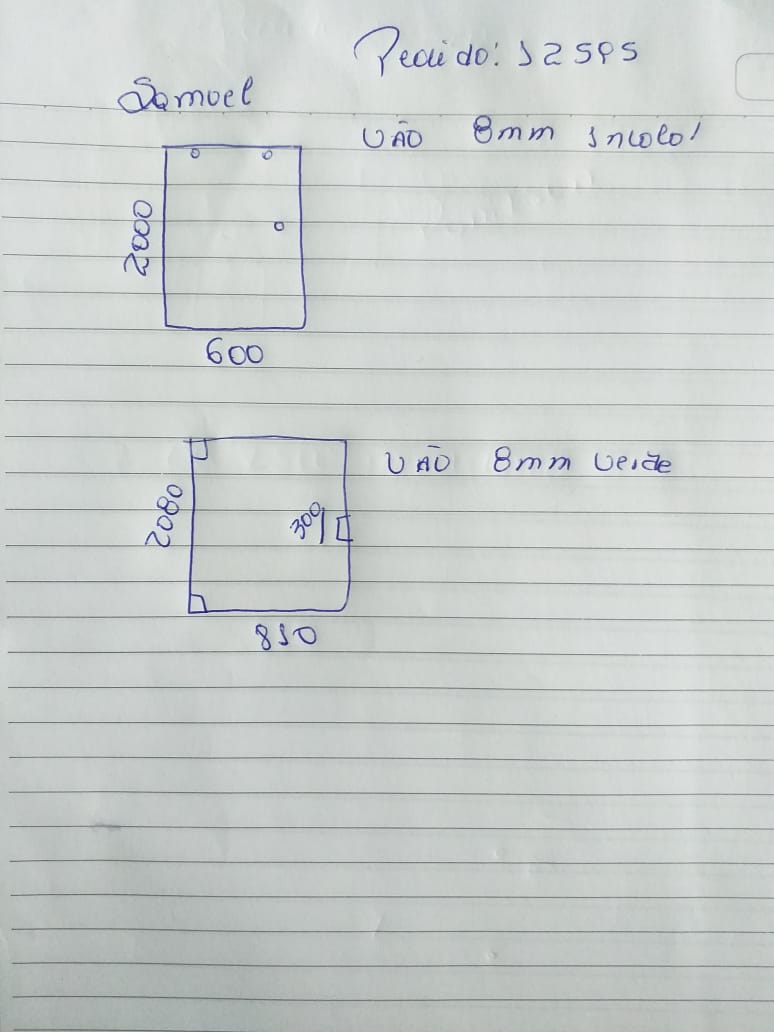 Pedido: 12595
Samuel
VÃO 8mm incolor
2000
600
VÃO 8mm verde
2080
300
810